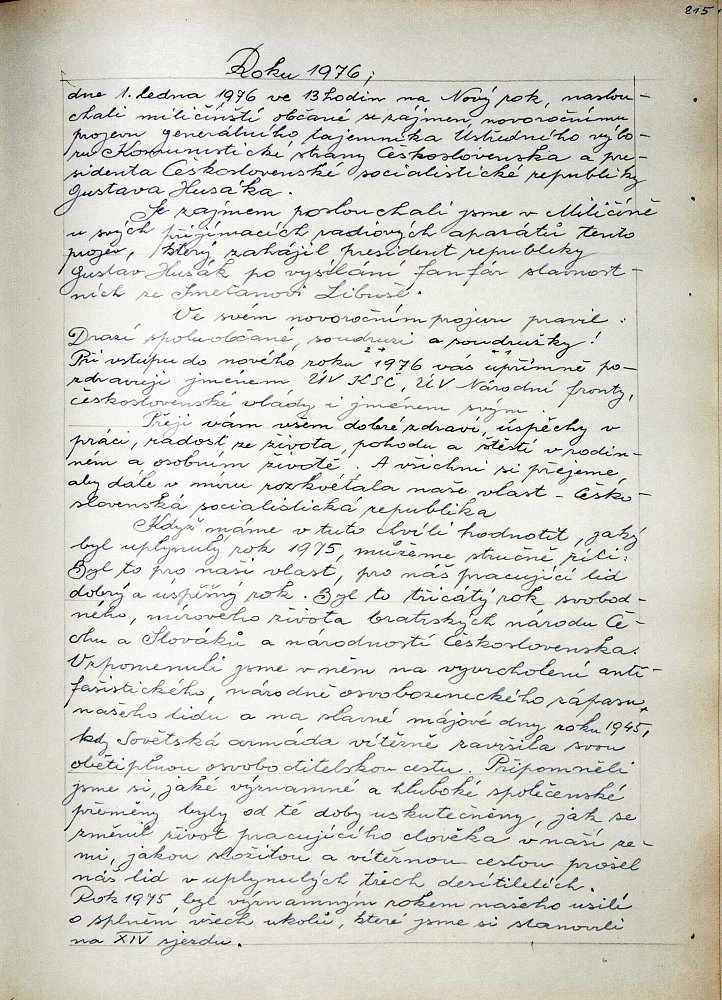 215
Roku 1976;
dne 1. ledna 1976 ve 13 hodin na Nový rok, naslou-
chali miličínští občané se zájmem novoročnímu
projevu generálního tajemníka Ústředního výbo-
ru Komunistické strany Československa a pre-
sidenta Československé socialistické republiky
Gustava Husáka.
Se zájmem poslouchali jsme v Miličíně
u svých přijímacích radiových aparátů tento
projev, který zahájil president republiky
Gustav Husák po vysílání fanfár slavnost-
ních ze Smetanovi Libuše.
Ve svém novoročním projevu pravil:
Drazí spoluobčané, soudruzi a soudružky!
Při vstupu do nového roku 1976 vás upřímně po-
zdravuji jménem ÚV KSČ, ÚV Národní fronty,
československé vlády i jménem svým.
Přeji vám všem dobré zdraví, úspěchy v
práci, radost ze života, pohodu a štěstí v rodin-
ném a osobním životě. A všichni si přejeme,
aby dále v míru rozkvétala naše vlast - Česko-
slovenská socialistická republika
Když máme v tuto chvíli hodnotit, jaký
byl uplynulý rok 1975, můžeme stručně říci:
Byl to pro naši vlast, pro náš pracující lid
dobrý a úspěšný rok. Byl to třicátý rok svobod-
ného, mírového života bratrských národu Če-
chu a Slováků a národností Československa.
Vzpomenuli jsme v něm na vyvrcholení anti-
fašistického, národně osvobozeneckého zápasu
našeho lidu a na slavné májové dny roku 1945,
kdy Sovětská armáda vítězně završila svou
obětiplnou osvoboditelskou cestu. Připomněli
jsme si, jaké významné a hluboké společenské
přeměny byly od té doby uskutečněny, jak se
změnil život pracujícího člověka v naší ze-
mi, jakou složitou a vítěznou cestou prošel
náš lid v uplynulých třech desítiletích.
Rok 1975 byl významným rokem našeho usilí
o splnění všech ukolů, které jsme si stanovili
na XIV sjezdu.